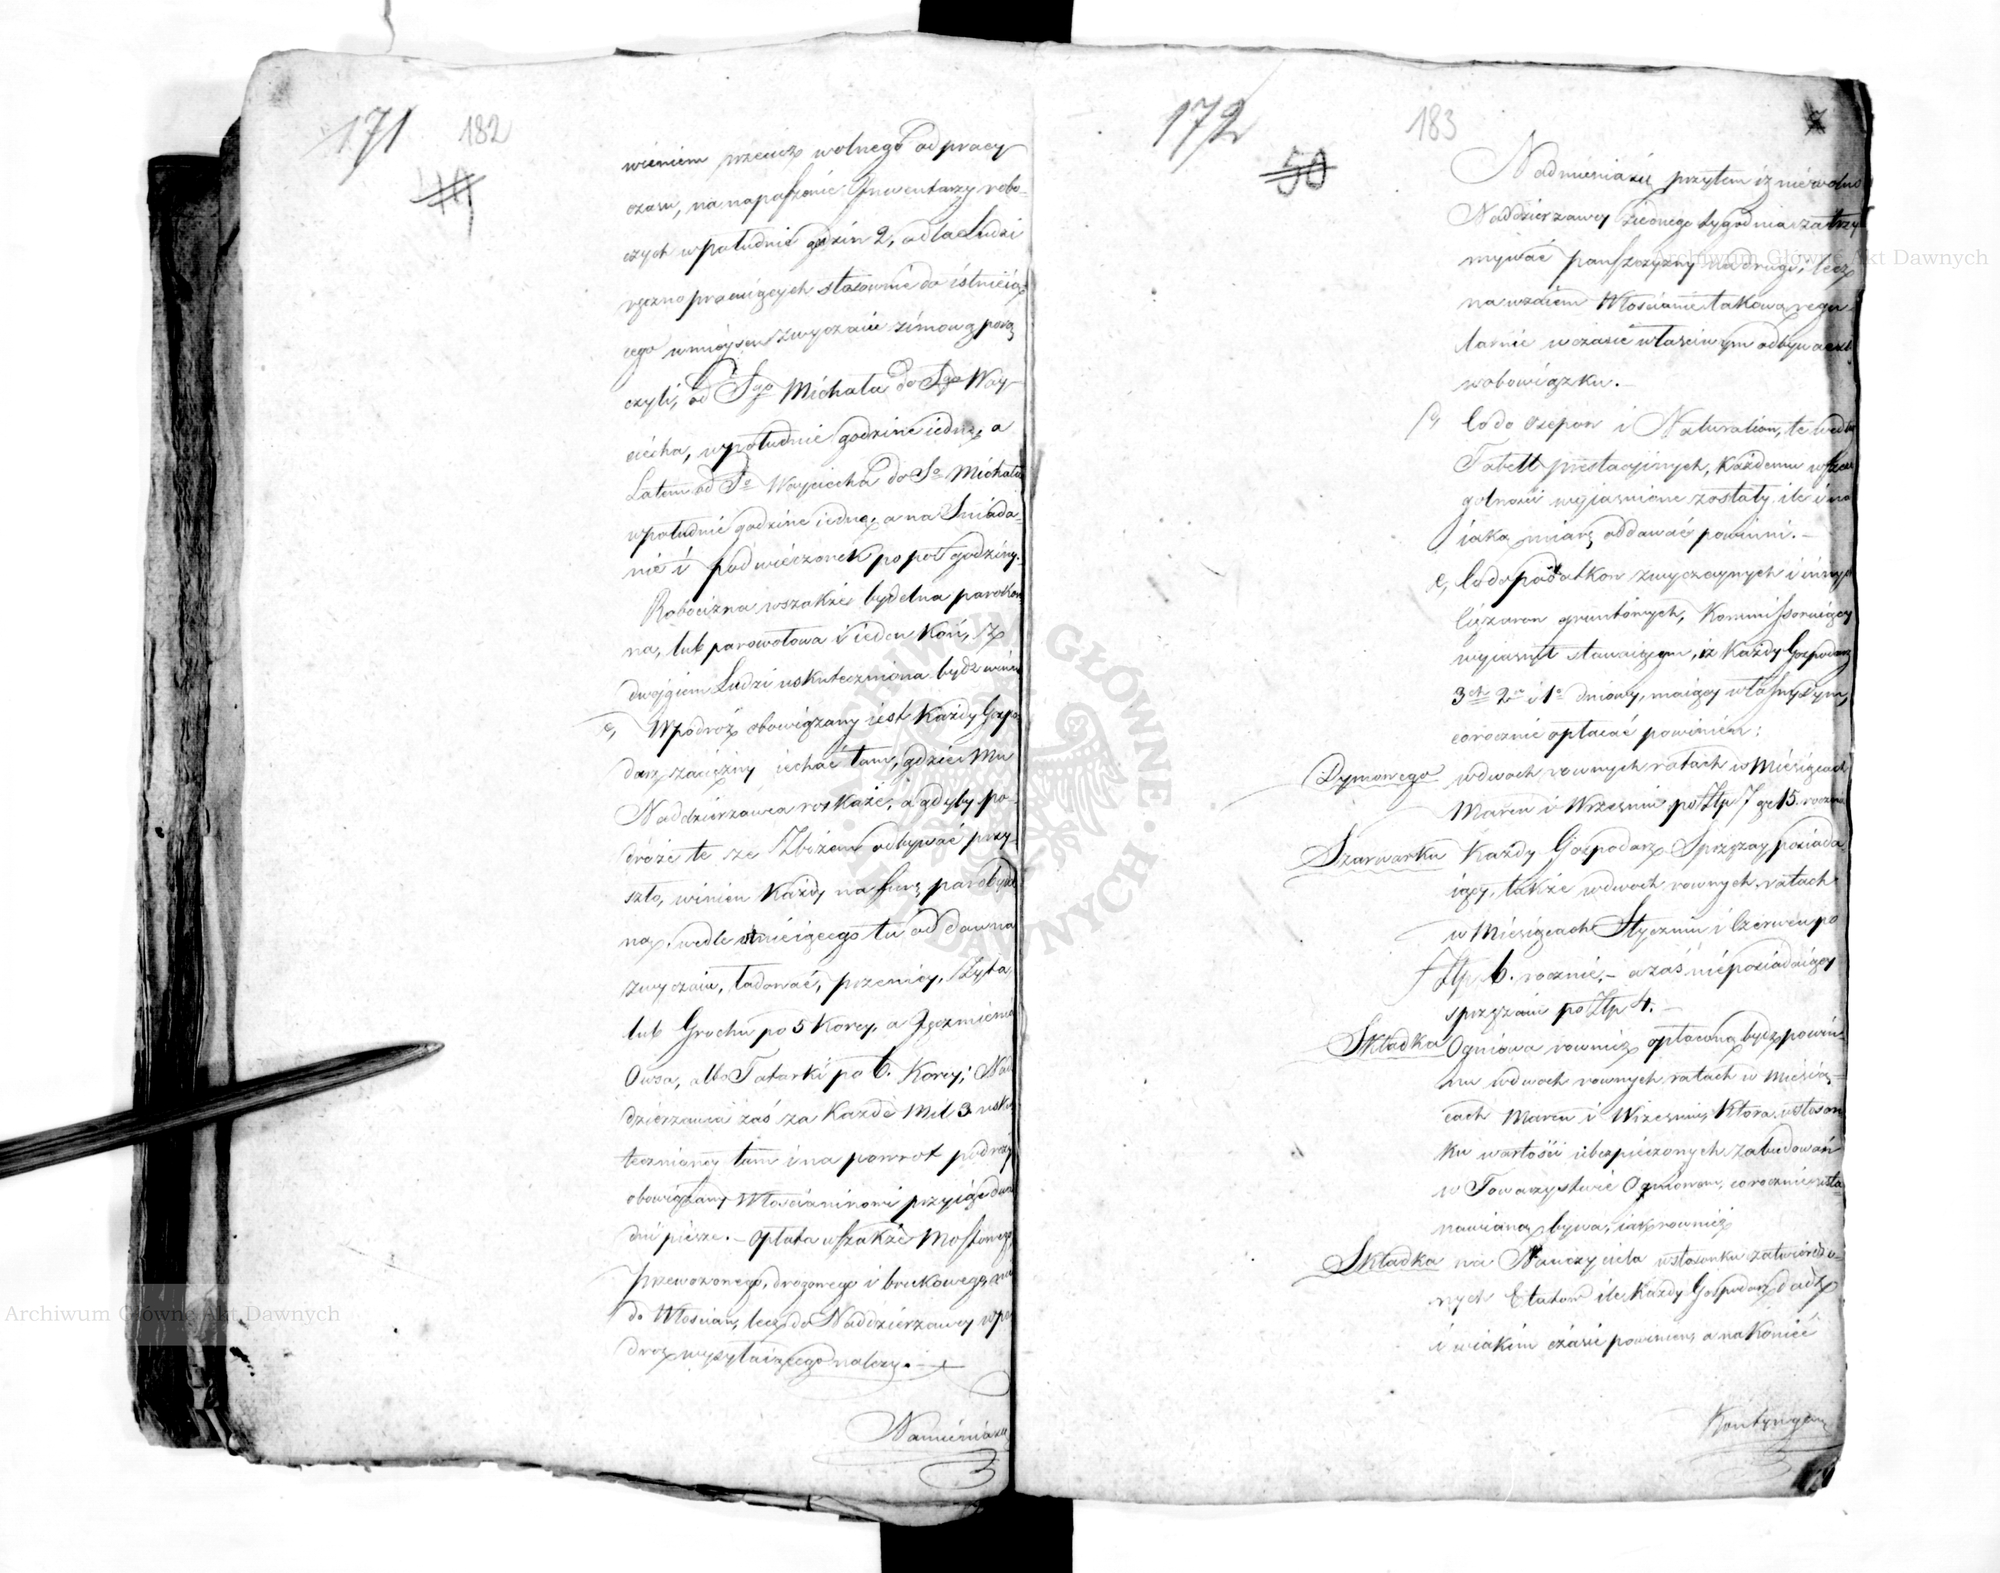 171 182
49
wieniem przecież wolnego od pracy
czasu, na napaszenie Inwentarzy robo-
czych w południe godzin 2, a dla Ludzi
ręczno pracuiących stosownie do istnieią-
cego w mieyscu zwyczaiu zimową porą
czyli, od Sgo Michała do Sgo Woy-
ciecha, w południe godzine iednę, a
Latem od So Woyciecha do So Michała
w południe godzine iednę, a na Sniada-
nie i podwieczorek po pół godziny.
Robocizna wszakże bydelna parokon-
na, lub parowołowa i ieden Koń, z
dwoygiem Ludzi uskuteczniona bydź winna
e, W podróż obowiązany iest Każdy Gospo-
darz zaciężny iechać tam, gdzie Mu
Naddzierżawca roskaże, a gdyby po-
dróże te ze Zbożem odbywać przy-
szło, winien Każdy na furę parokon-
ną, wedle istnieiącego tu od dawna
zwyczaiu, ładować, pszenicy, Żyta
lub Grochu po 5 Korcy, a Jęczmienia
Owsa, albo Tatarki po 6. Korcy; Nad-
dzierżawca zaś za Każde Mil 3 usku-
tecznianey tam i na powrot podroży
obowiązany Włościaninowi przyiąć dwa
dni piesze. – Opłata wszakże Mostowego,
przewozowego, drogowego i brukowego, nie
do Włościan, lecz do Naddzierżawcy w po-
droż wysyłaiącego należy. –
Namieniaiąc
172 183
50
Nadmienia się przytem iż niewolno
Naddzierżawcy z iednego tygodnia zatrzy-
mywać pańszczyzny na drugi, lecz
nawzaiem Włościanie takową regu-
larnie w czasie właściwym odbywać są
w obowiązku. –
Co do Osepów i Naturaliow, te wedle
Tabell prestacyinych, Każdemu w szcze-
gólności wyiaśnione zostały, ile i na
iaką miarę oddawać powinni. –
e, Co do podatkow zwyczaynych i innych
Ciężarow gruntowych, Kommissoruiący
wyiaśnił stawaiącym, iż Każdy Gospodarz
3ch 2u i 1o dniowy, maiący własny dym,
corocznie opłacać powinien:
Dymowego w dwoch rownych ratach w Miesiącach
Marcu i Wrześniu po Złp 7 gr 15. rocznie
Szarwarku Każdy Gospodarz Sprzężay posiada-
iący, także w dwoch rownych ratach
w Miesiącach Styczniu i Czerwcu po
Złp 6. rocznie, – a zaś nieposiadaiący
sprzężaiu po Złp 4. –
Składka Ogniowa rownież opłaconą bydź powin-
na w dwoch rownych ratach w Miesią-
cach Marcu i Wrześniu, Ktora w stosun-
ku wartości ubezpieczonych zabudowań
w Towarzystwie Ogniowem, corocznie usta-
nawianą bywa, iako rownież
Składka na Nauczyciela w stosunku zatwierdzo-
nych Etatow ile Każdy Gospodarz dadź
i w iakim czasie powinien, a na koniec
Kontyngens
Archiwum Główne Akt Dawnych
Archiwum Główne Akt Dawnych
ARCHIWUM GŁÓWNE AKT DAWNYCH